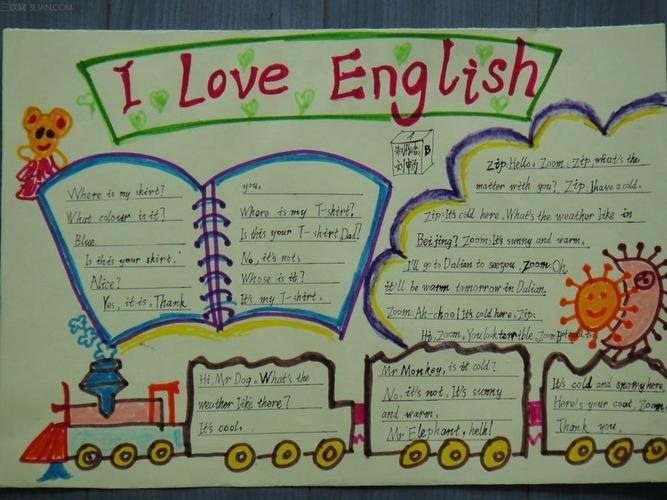 三联网 3LIAN.COM
I Love English
1
制作者
刘畅
B
Where is my skirt?
What colour is it?
Blue
Is this your skirt,
Alice?
Yes, it is. Thank
you.
Where is my T-shirt?
Is this your T-shirt Dad?
No, it's not.
Whose is it?
It's my T-shirt.
Zip: Hello. Zoom: Zip, what's the
matter with you? Zip: I have a cold.
Zip: It's cold here. What's the weather like in
Beijing? Zoom: It's sunny and warm.
I'll go to Dalian to see you. Zoom: Oh
it'll be warm tomorrow in Dalian.
Zoom: Ah-choo! It's cold here. Zip:
Hi, Zoom. You look terrible. Zoom:
Hi, Mr Dog. What's the
weather like there?
It's cool.
Mr Monkey, is it cold?
No, it's not. It's sunny
and warm.
Mr Elephant, helh!
It's cold and snowy here.
Here's your coat, Zoom
Thank you.